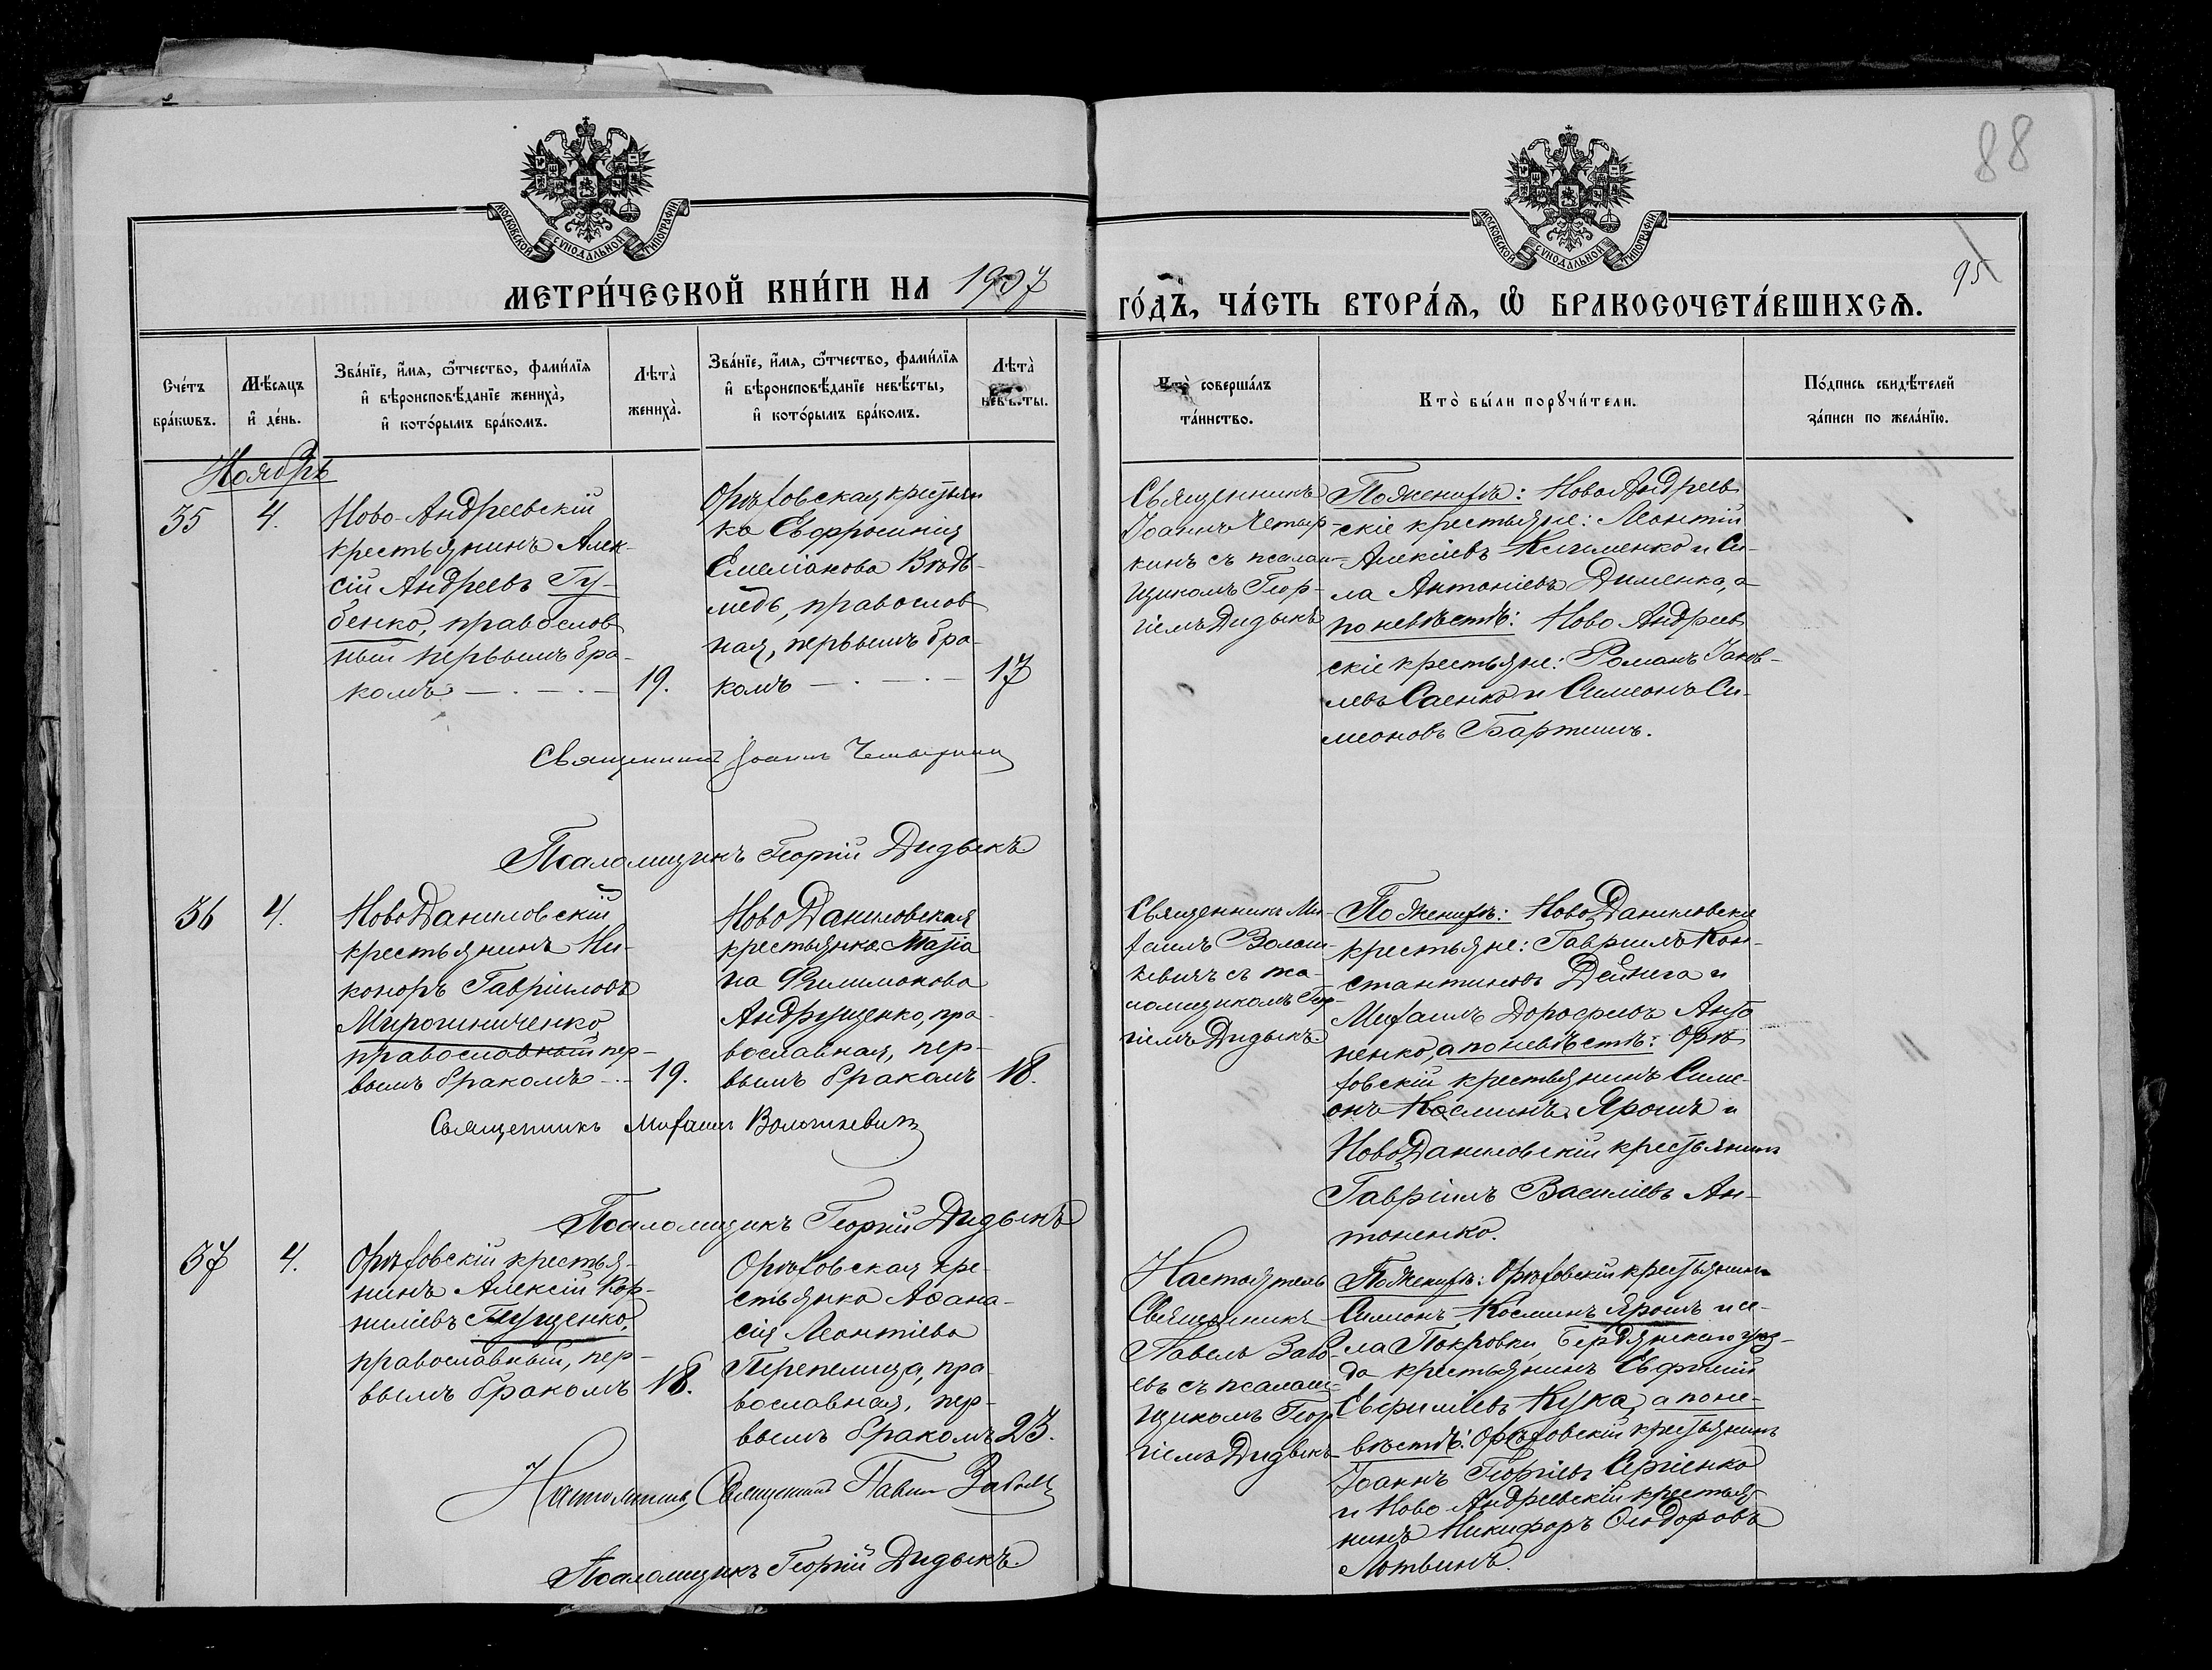 88
МОСКОВСКОЙ СУНОДАЛЬНОЙ ТИПОГРАФІИ
МОСКОВСКОЙ СУНОДАЛЬНОЙ ТИПОГРАФІИ
95
МЕТРИ́ЧЕСКОЙ КНИ́ГИ НА 1907
ГО́ДЪ, ЧА́СТЬ ВТОРА́Ѧ, Ѽ БРАКОСОЧЕТА́ВШИХСѦ.
Сче́тъ
бра́кѡвъ.
Мѣ́сѧцъ
и҆ де́нь.
Зва́нїе, и҆́мѧ, ѻ҆́тчество, фами́лїѧ
и҆ вѣроисповѣ́данїе жениха̀,
и҆ кото́рымъ бра́комъ.
Лѣта̀
жениха̀.
Зва́нїе, и҆́мѧ, ѻ҆́тчество, фами́лїѧ
и҆ вѣроисповѣ́данїе невѣ́сты,
и҆ кото́рымъ бра́комъ.
Лѣта̀
невѣ́сты.
Кто̀ соверша́лъ
та́инство.
Кто̀ бы́ли порꙋчи́тели.
По́дпись свидѣ́телей
за́писи по жела́нїю.
Ноябрь
35
4.
Ново-Андреевскій
крестьянинъ Алек-
сій Андреевъ Гу-
бенко, православ
ный первымъ бра-
комъ
19.
Орѣховская крестьян
ка Евфросинія
Емеліанова Вѣдь-
медь, православ
ная, первымъ бра-
комъ
17
Священникъ
Іоаннъ Четыр-
кинъ съ псалом-
щикомъ Геор-
гіемъ Дидыкъ
По женихѣ: НовоАндреев
скіе крестьяне: Леонтій
Алексіевъ Клименко и Си-
ла Антоніевъ Дименко, а
по невѣстѣ: Ново Андреев
скіе крестьяне: Романъ Іаков-
левъ Саенко и Симеонъ Си-
меоновъ Бартишъ.
Священникъ Іоаннъ Четыркинъ
Псаломщикъ Георгій Дидыкъ
36
4.
НовоДаниловскій
крестьянинъ Ни-
коноръ Гавріиловъ
Мирошниченко,
православный пер-
вымъ бракомъ
19.
НовоДаниловская
крестьянка Марія
на Филимонова
Андрущенко, пра-
вославная, пер-
вымъ бракомъ
18.
Священникъ Ми-
хаилъ Волош-
кевичъ съ пса-
ломщикомъ Геор-
гіемъ Дидыкъ
По женихѣ: НовоДаниловскіе
крестьяне: Гавріилъ Кон-
стантиновъ Дейнега и
Михаилъ Дороѳеевъ Анто
ненко, а по невѣстѣ: Орѣ
ховскій крестьянинъ Симе-
онъ Косминъ Ярошъ и
НовоДаниловскій крестьянинъ
Гавріилъ Василіевъ Ан-
тоненко.
Священникъ Михаилъ Волошкевичъ
Псаломщикъ Георгій Дидыкъ
37
4.
Орѣховскій крестья-
нинъ Алексій Кор-
ниліевъ
православный, пер-
вымъ бракомъ
18.
Орѣховская кре-
стьянка Аѳана-
сія Леонтіева
Перепелица, пра-
вославная, пер-
вымъ бракомъ
23.
Настоятель
Священникъ
Павелъ
съ псалом-
щикомъ Геор
гіемъ Дидыкъ
По женихѣ: Орѣховскій крестьянинъ
Симеонъ Косминъ Ярошъ и се-
ла Покровки, Бердянскаго уѣз-
да крестьянинъ Евфимій
Евфиміевъ Кука, а по не-
вѣстѣ: Орѣховскій крестьянинъ
Іоаннъ Георгіевъ Сергіенко
и Ново Андреевскій крестья-
нинъ Никифоръ Ѳеодоровъ
Литвинъ.
Настоятель, Священникъ Павелъ
Псаломщикъ Георгій Дидыкъ.